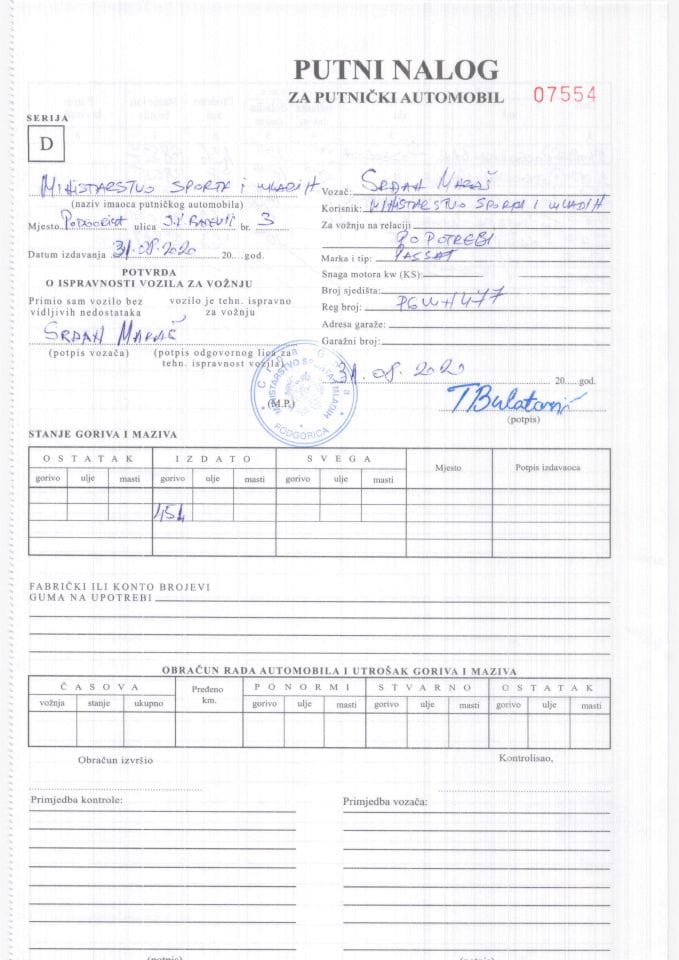 PUTNI NALOG
ZA PUTNIČKI AUTOMOBIL 07554
SERIJA
D
MINISTARSTVO SPORTA I MLADIH
(naziv imaoca putničkog automobila)
Mjesto PODGORICA ulica br. 3
Datum izdavanja 31.08.2020 20.....god.
POTVRDA
O ISPRAVNOSTI VOZILA ZA VOŽNJU
Primio sam vozilo bez vidljivih nedostataka
vozilo je tehn. ispravno za vožnju
SRĐAN MARAŠ
(potpis vozača) (potpis odgovornog lica za tehn. ispravnost vozila)
Vozač: SRĐAN MARAŠ
Korisnik: MINISTARSTVO SPORTA I MLADIH
Za vožnju na relaciji
PO POTREBI
Marka i tip: PASSAT
Snaga motora kw (KS):
Broj sjedišta:
Reg broj: PGWH477
Adresa garaže:
Garažni broj:
31.08.2020
20.....god.
Crna Gora
MINISTARSTVO SPORTA I MLADIH
PODGORICA
(M.P.)
T Bulatović
(potpis)
STANJE GORIVA I MAZIVA
OSTATAK IZDATO SVEGA Mjesto Potpis izdavaoca
gorivo ulje masti gorivo ulje masti gorivo ulje masti
45L
FABRIČKI ILI KONTO BROJEVI
GUMA NA UPOTREBI
OBRAČUN RADA AUTOMOBILA I UTROŠAK GORIVA I MAZIVA
ČASOVA Pređeno km. PO NORMI STVARNO OSTATAK
vožnja stanje ukupno gorivo ulje masti gorivo ulje masti gorivo ulje masti
Obračun izvršio Kontrolisao,
Primjedba kontrole: Primjedba vozača:
(potpis) (potpis)